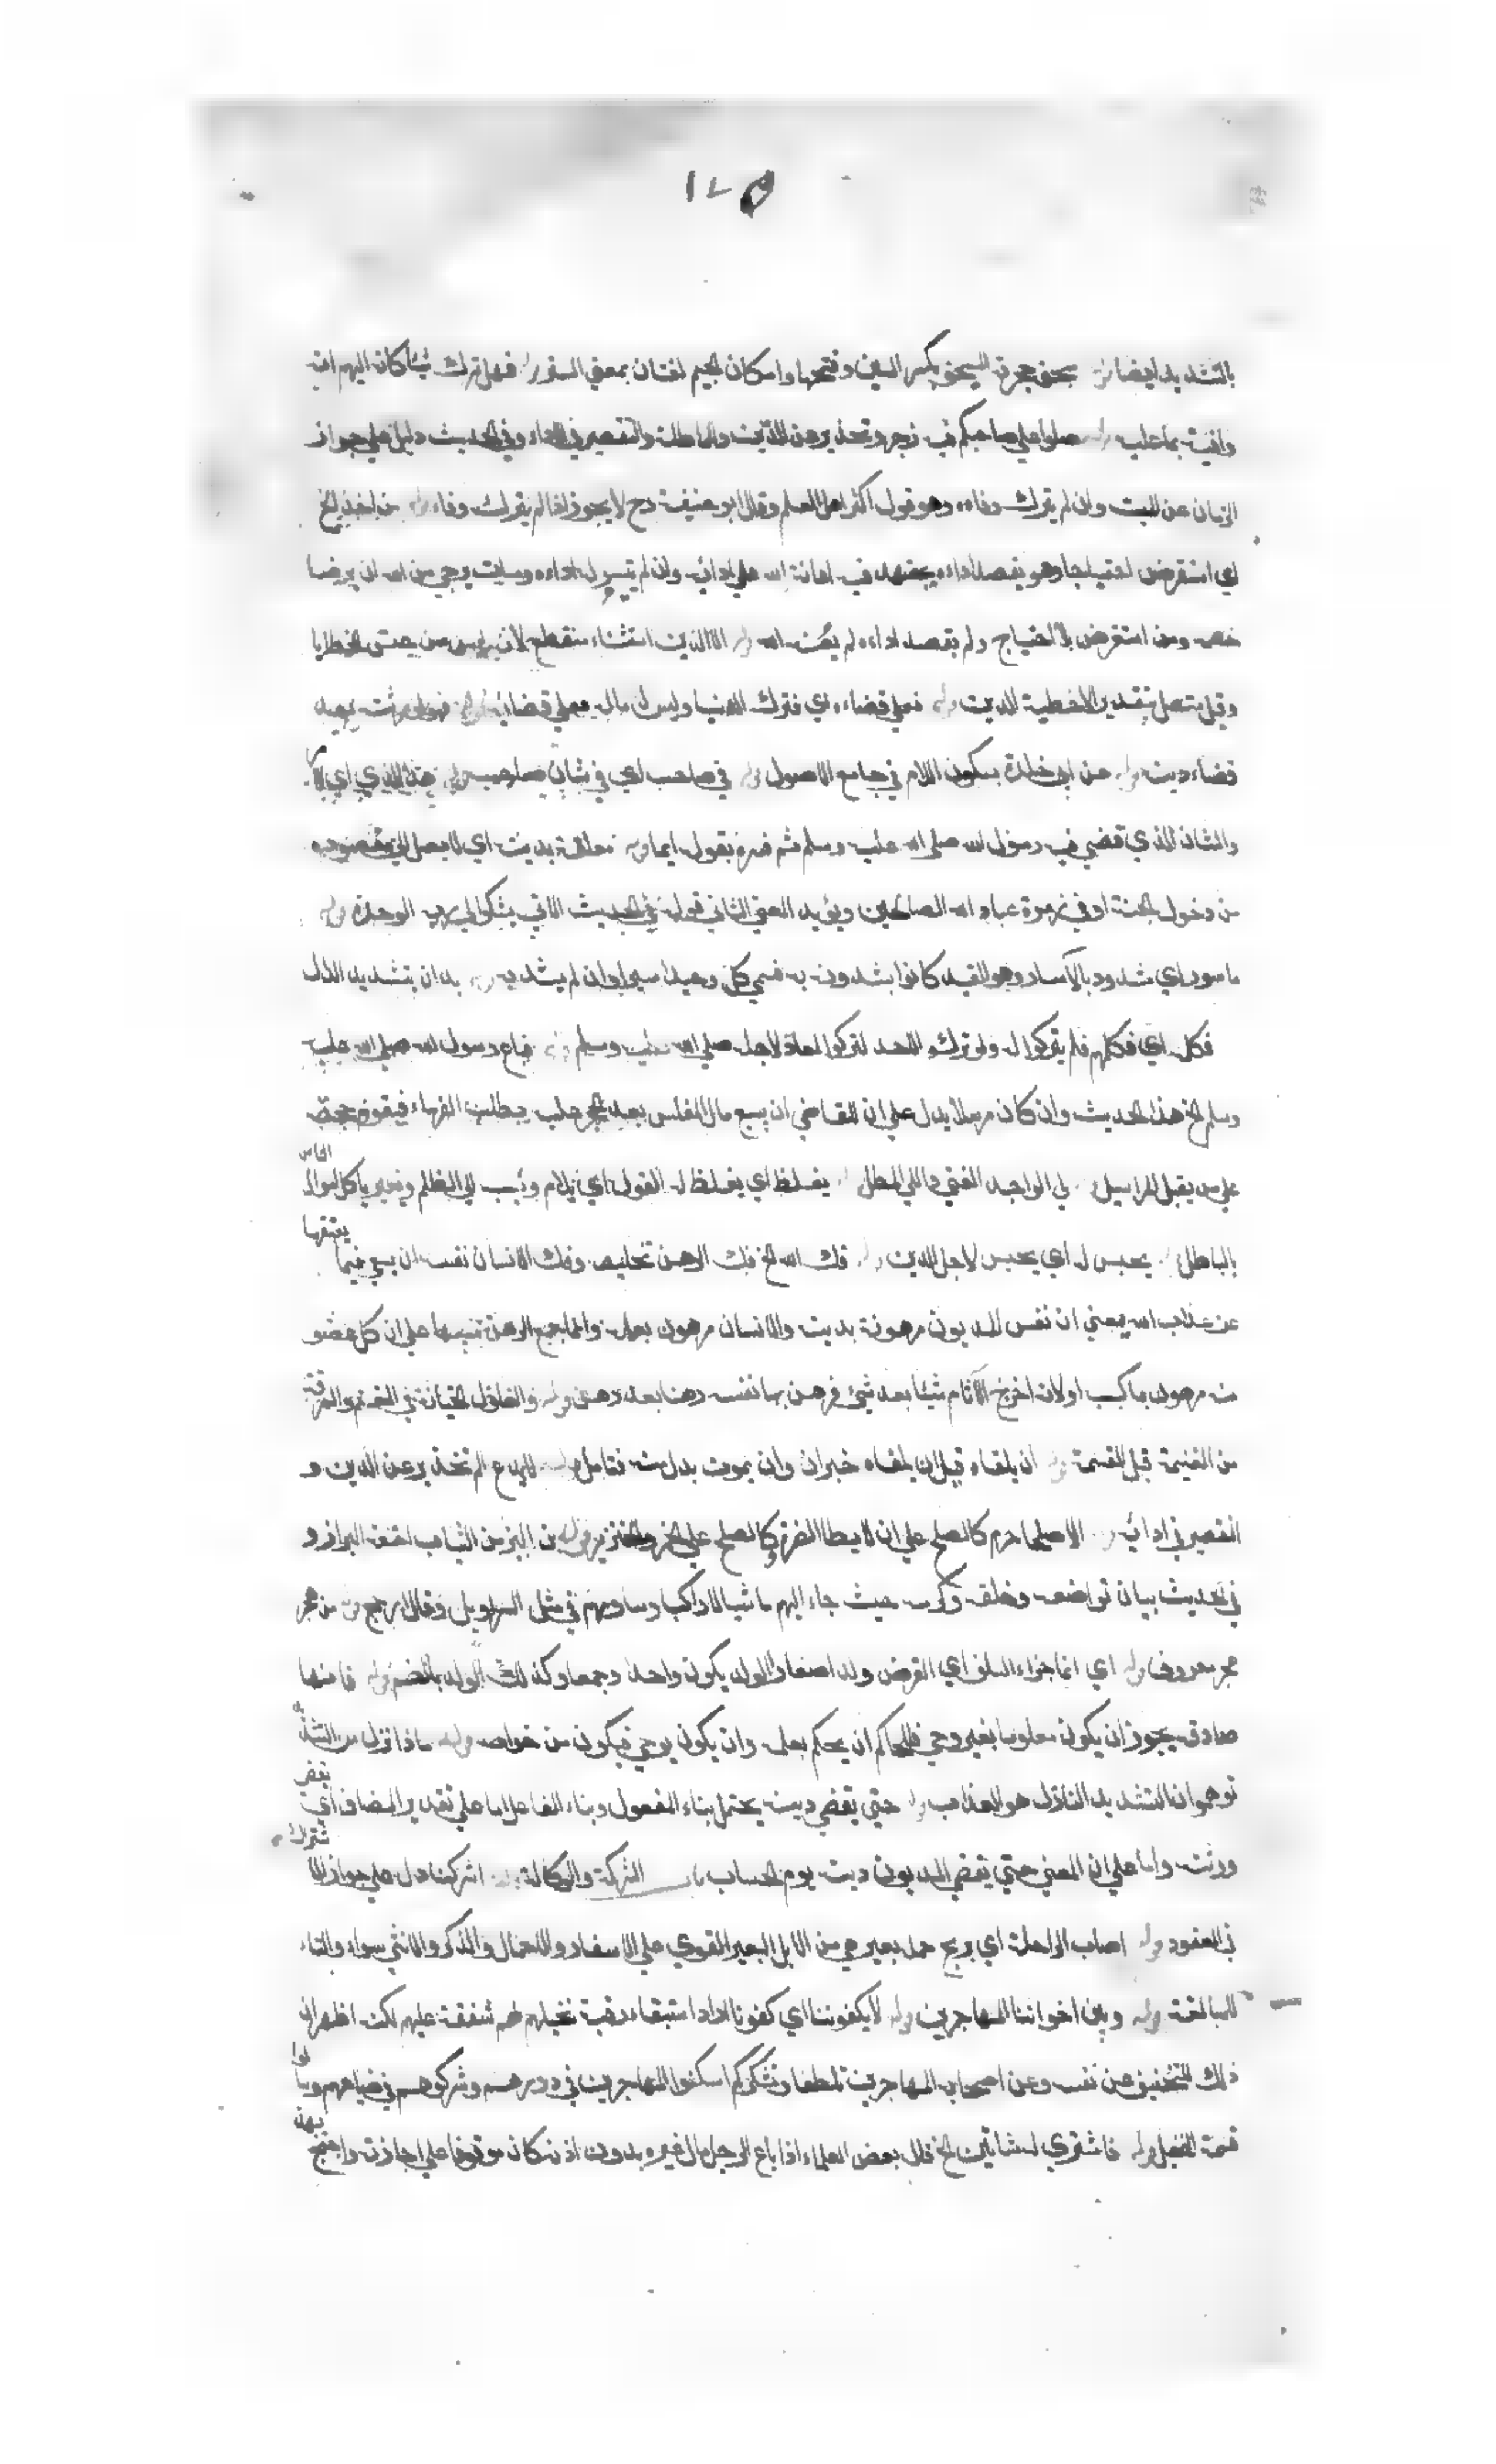 ١٢٥
بالتشديد ايضا قوله سجف حجرته السجف بكسر السين وفتحها واسكان الجيم لغتان بمعنى الستر قوله فهل ترك شيئا كانه اليهم انه
وافية بما عليه قوله صلوا على صاحبكم فيه زجر وتحذير عن الدين والمماطلة والتقصير في الاداء وفي الحديث دليل على جواز
الضمان عن الميت وان لم يترك وفاء وهو قول اكثر اهل العلم وقال ابو حنيفة رح لا يجوز اذا لم يترك وفاء قوله من اخذ الخ
اي استقرض احتياجا وهو يقصد اداءه يجتهد فيه اعانه الله على ادائه وان لم يتيسر له اداءه ومات يرجى من الله ان يرضا
خصمه ومن استقرض بلا احتياج ولم يقصد اداءه لم يعنه الله قوله الا الدين استثناء منقطع لانه ليس من جنس الخطايا
وقيل متصل بتقدير الا خطيئة الدين قوله فعلي قضاءه اي فترك الدنيا وليس له مال فعلي قضائه قوله فهو لورثته بعد
قضاء دينه قوله عن ابي خلدة بسكون اللام في جامع الاصول قوله في صاحب اي في شان صاحب قوله هذا الذي اي
والشان الذي قضى فيه رسول الله صلى الله عليه وسلم ثم فسره بقول ايما قوله معلقة بدينه اي لا يصل الى مقصوده
من دخول الجنة او في زمرة عباد الله الصالحين ويؤيد المعنى الثاني قوله في الحديث الاتي يشكو الى ربه الوحدة قوله
ماسور اي مشدود بالاسار وهو القيد كانوا يشدونه به فسمي كل وحيد اسيرا وان لم يشد به قوله يدان بتشديد الدال
فكل اي فكلهم فلم يتركوا له ولو تركوا لاحد لتركوا لمعاذ لاجله صلى الله عليه وسلم قوله فباع رسول الله صلى الله عليه
وسلم الخ هذا الحديث وان كان مرسلا يدل على ان للقاضي ان يبيع مال المفلس بعد الحجر عليه بطلب الغرماء فيقوم حجة
على من يقبل المراسيل قوله لي الواجد الغني واللي المطل قوله يغلظ اي يغلظ له القول اي يلام وينسب الى الظلم ويعير باكل اموال الناس
بالباطل قوله يحبس له اي يحبس لاجل الدين قوله فك الله الخ فك الرهن تخليصه وفك الانسان نفسه ان يسعى فيما يعتقها
عن عذاب الله يعني ان نفس المديون مرهونة بدينه والانسان مرهون بعمله وانما جمع الرهن تنبيها على ان كل عضو
منه مرهون بما كسب او لانه اخرج الآثام شيئا بعد شئ فرهن بها نفسه رهنا بعد رهن قوله والغلول الخيانة في المغنم والسرقة
من الغنيمة قبل القسمة قوله ان يلقاه قبل ان يلقاه خبر ان وان يموت بدل منه فتامل قوله لا يدع له تحذير عن الدين و
التقصير في ادائه قوله الا صلحا حرم كالصلح على ان لا يطأ الضرة وكالصلح على الخمر والخنزير قوله من البز من الثياب امتعة البزاز و
في الحديث بيان تواضعه وخلقه وكرمه حيث جاء اليهم ماشيا لا راكبا وساومهم في مثل السراويل وقال ارجح قوله من هجر
هجر معروف قوله اي انما جزاء السلف اي القرض ولد اصغار الولد يكون واحدا وجمعا وكذلك الولد بالضم قوله فانها
صادقة يجوز ان يكون معلوما بغير وحي فللحاكم ان يحكم بعلمه وان يكون بوحي فيكون من خواصه قوله ماذا نزل من التشديد
توهموا ان التشديد النازل هو العذاب قوله حتى يقضى دينه يحتمل بناء المفعول وبناء الفاعل اما على تقدير المضاف اي يقضي
ورثته واما على ان المعنى حتى يقضي المديون دينه يوم الحساب باب الشركة والوكالة قوله اشركنا دل على جواز الاشتراك
في العقود قوله اصاب الراحلة اي يربح حمل بعير هي من الابل البعير القوي على الاسفار والاحمال والذكر والانثى سواء والتاء
للمبالغة قوله وبين اخواننا المهاجرين قوله لا تكفوننا اي كفونا اراد استبقاء رقبة نخيلهم لهم شفقة عليهم لكنه اظهر ان
ذلك للتخفيف عن نفسه وعن اصحابه المهاجرين تلطفا وتكرما اسكنوا المهاجرين في دورهم وشركوهم في ضياعهم وسالوا
قسمة النخيل قوله فاشترى له شاتين الخ قال بعض العلماء اذا باع الرجل مال غيره بدون اذنه كان موقوفا على اجازته واحتج بهذا